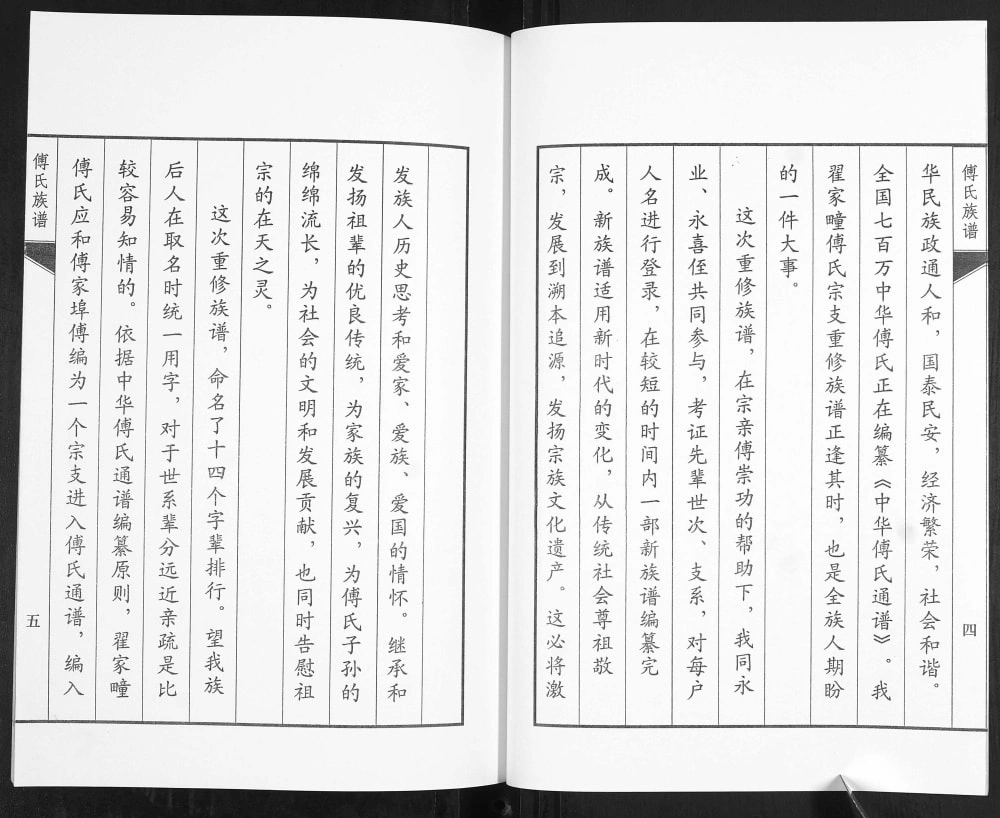 傅氏族谱
四
华民族政通人和，国泰民安，经济繁荣，社会和谐。
全国七百万中华傅氏正在编纂《中华傅氏通谱》。我
翟家疃傅氏宗支重修族谱正逢其时，也是全族人期盼
的一件大事。
这次重修族谱，在宗亲傅崇功的帮助下，我同永
业、永喜侄共同参与，考证先辈世次、支系，对每户
人名进行登录，在较短的时间内一部新族谱编纂完
成。新族谱适用新时代的变化，从传统社会尊祖敬
宗，发展到溯本追源，发扬宗族文化遗产。这必将激
发族人历史思考和爱家、爱族、爱国的情怀。继承和
发扬祖辈的优良传统，为家族的复兴，为傅氏子孙的
绵绵流长，为社会的文明和发展贡献，也同时告慰祖
宗的在天之灵。
这次重修族谱，命名了十四个字辈排行。望我族
后人在取名时统一用字，对于世系辈分远近亲疏是比
较容易知情的。依据中华傅氏通谱编纂原则，翟家疃
傅氏应和傅家埠傅编为一个宗支进入傅氏通谱，编入
傅氏族谱
五